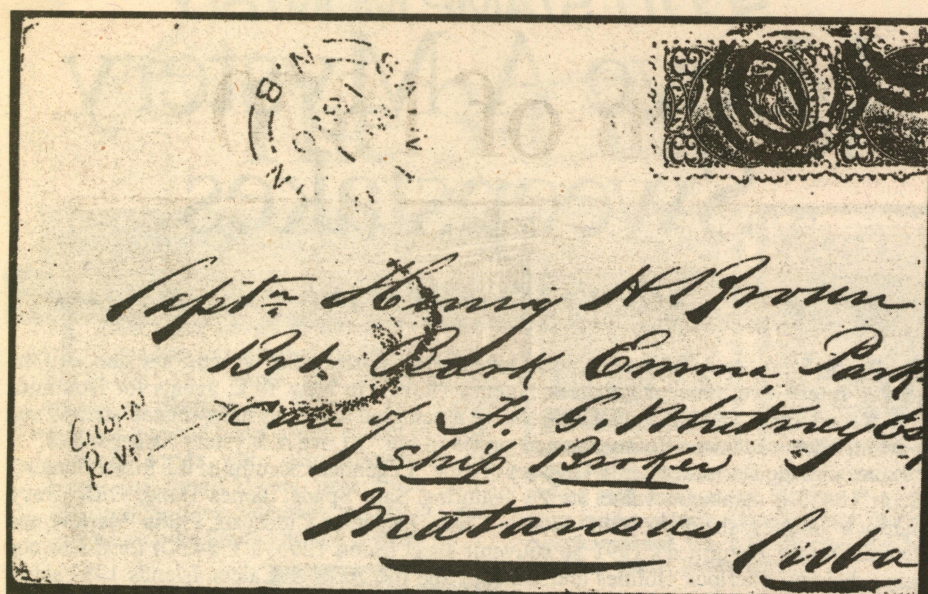 SAINT JOHN N.B.
Captn Henry H Brown
Brt. Bark Emma Park
Care of F. G. Whitney Es
Ship Broker
Matanzas
Cuba
CUBAN
RCVR